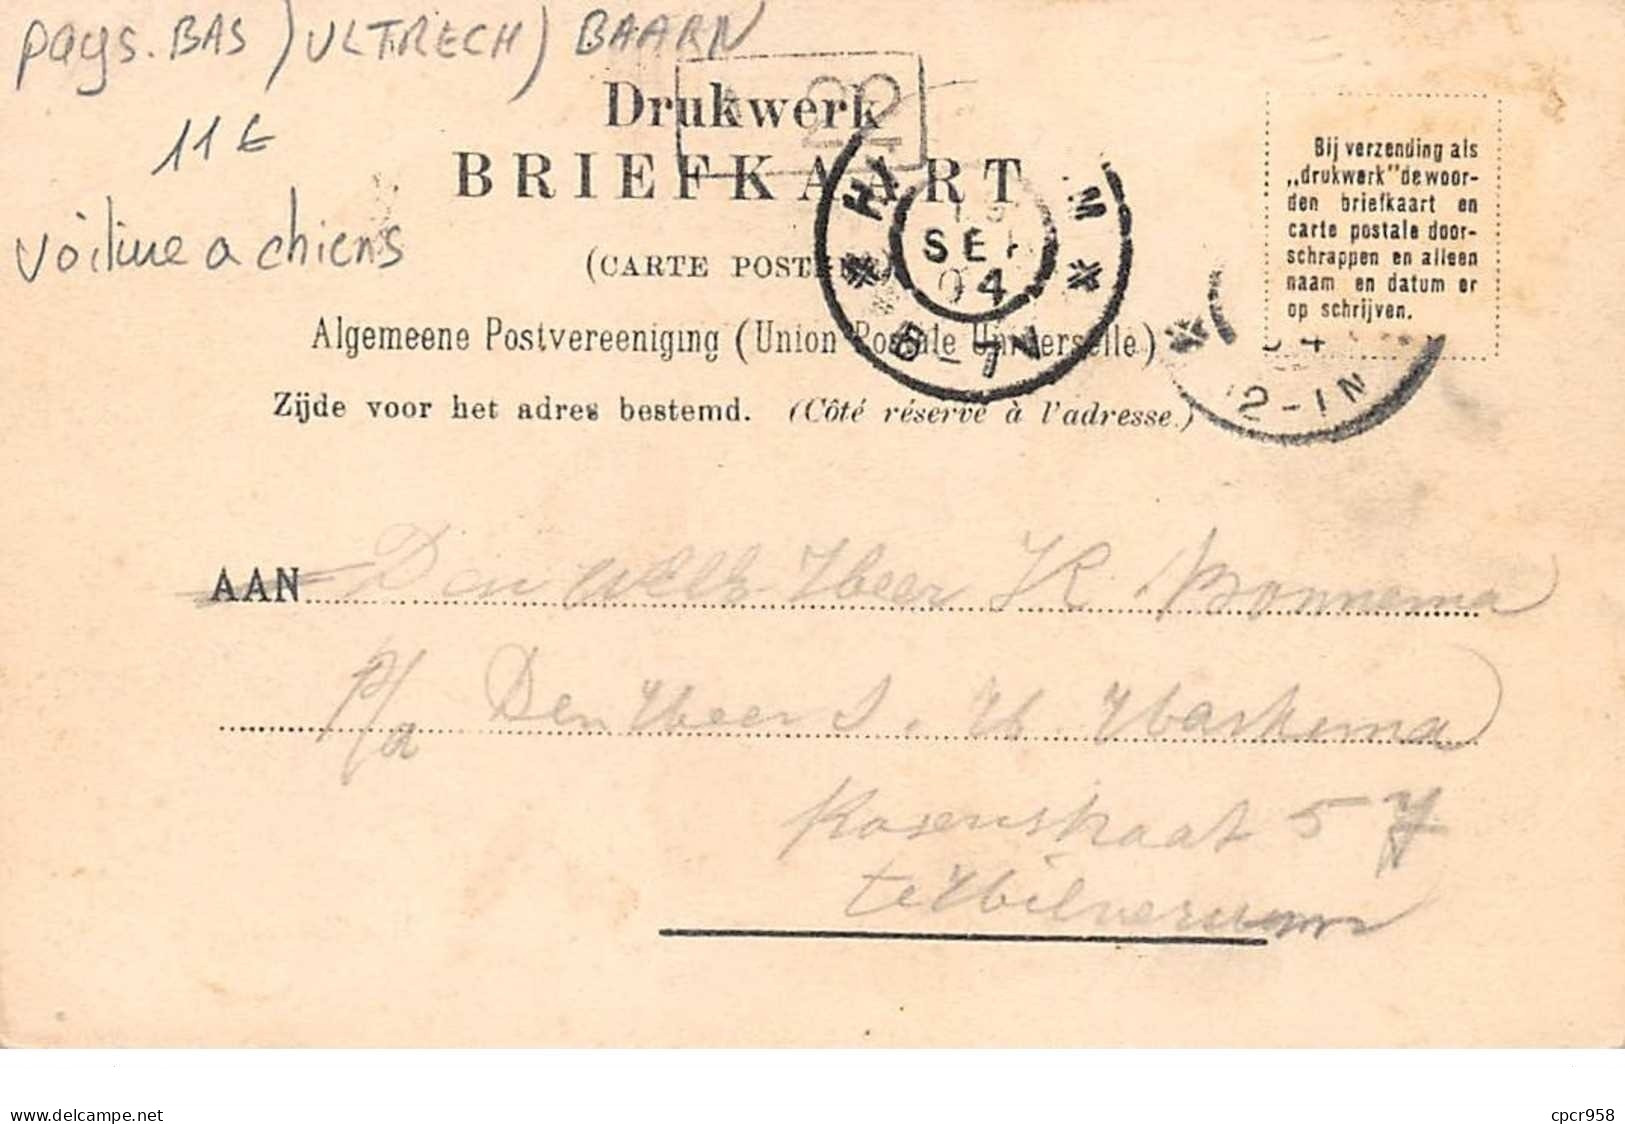 pays. BAS ) ULTRECH) BAARN
11€
voiture a chiens
22
Drukwerk
BRIEFKAART
(CARTE POSTALE)
Algemeene Postvereeniging (Union Postale Universelle)
Zijde voor het adres bestemd. (Côté réservé à l'adresse.)
Bij verzending als
„drukwerk" de woor-
den briefkaart en
carte postale door-
schrappen en alleen
naam en datum er
op schrijven.
H M
SEP
04
6-7V
04
12-1N
AAN Den Heer K. Bonnema
p/a Den Heer S. H. Haskema
Rosenstraat 57
te Hilversum
delcampe.net
cpcr958